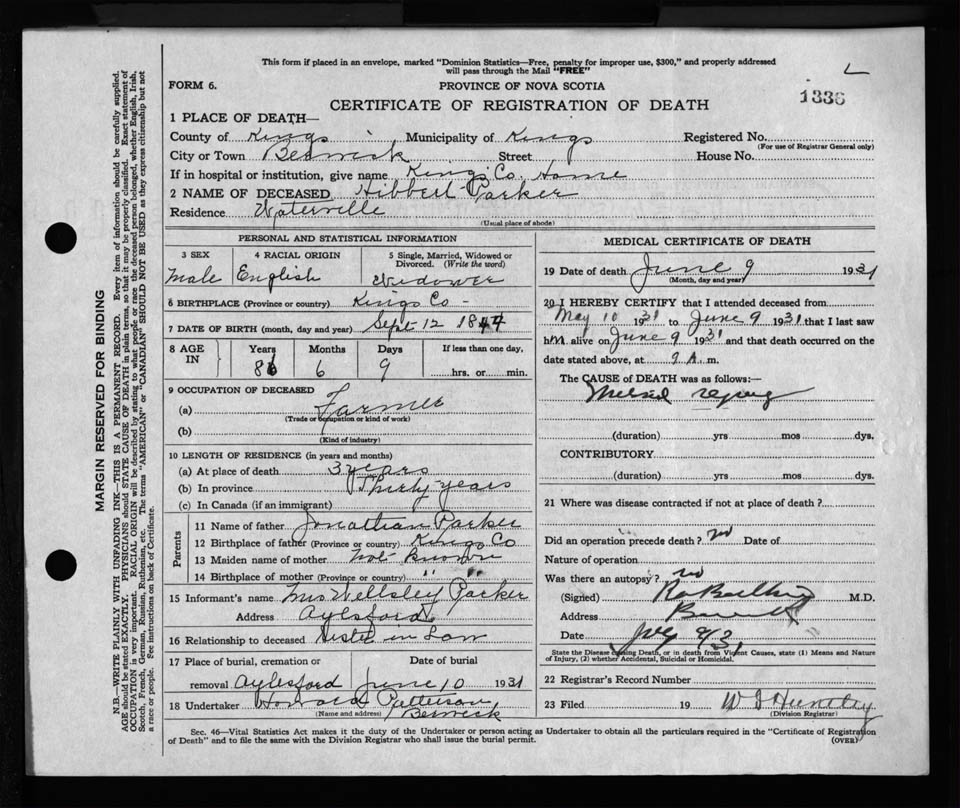 This form if placed in an envelope, marked "Dominion Statistics—Free, penalty for improper use, $300," and properly addressed
will pass through the Mail "FREE"
FORM 6.
PROVINCE OF NOVA SCOTIA
1336
CERTIFICATE OF REGISTRATION OF DEATH
1 PLACE OF DEATH—
County of Kings Municipality of Kings Registered No.
(For use of Registrar General only)
City or Town Berwick Street House No.
If in hospital or institution, give name Kings Co. Home
2 NAME OF DECEASED Hibbert Parker
Residence Waterville
(Usual place of abode)
PERSONAL AND STATISTICAL INFORMATION
3 SEX 4 RACIAL ORIGIN 5 Single, Married, Widowed or
Divorced. (Write the word)
Male English Widower
6 BIRTHPLACE (Province or country) Kings Co -
7 DATE OF BIRTH (month, day and year) Sept 12 1844
8 AGE IN Years Months Days If less than one day,
86 6 9 hrs. or min.
9 OCCUPATION OF DECEASED
(a) Farmer
(Trade or occupation or kind of work)
(b)
(Kind of industry)
10 LENGTH OF RESIDENCE (in years and months)
(a) At place of death 3 years
(b) In province Thirty years
(c) In Canada (if an immigrant)
Parents
11 Name of father Jonathan Parker
12 Birthplace of father (Province or country) Kings Co
13 Maiden name of mother Not Known
14 Birthplace of mother (Province or country) " "
15 Informant's name Mrs Wellsley Parker
Address Aylesford
16 Relationship to deceased Sister in Law
17 Place of burial, cremation or Date of burial
removal Aylesford June 10 1931
18 Undertaker Howard Patterson
(Name and address) Berwick
MEDICAL CERTIFICATE OF DEATH
19 Date of death June 9 1931
(Month, day and year)
20 I HEREBY CERTIFY that I attended deceased from
May 10 1931 to June 9 1931 that I last saw
him alive on June 9 1931 and that death occurred on the
date stated above, at 9 A m.
The CAUSE OF DEATH was as follows:—
(duration) yrs mos dys.
CONTRIBUTORY
(duration) yrs mos dys.
21 Where was disease contracted if not at place of death?
Did an operation precede death? no Date of
Nature of operation
Was there an autopsy? no
(Signed) M.D.
Address Berwick
Date
State the Disease causing Death, or in death from Violent Causes, state (1) Means and Nature
of Injury, (2) whether Accidental, Suicidal or Homicidal.
22 Registrar's Record Number
23 Filed 19 Huntley
(Division Registrar)
Sec. 46—Vital Statistics Act makes it the duty of the Undertaker or person acting as Undertaker to obtain all the particulars required in the "Certificate of Registration
of Death" and to file the same with the Division Registrar who shall issue the burial permit.
(OVER)
MARGIN RESERVED FOR BINDING
N.B.—WRITE PLAINLY WITH UNFADING INK—THIS IS A PERMANENT RECORD. Every item of information should be carefully supplied.
AGE should be stated EXACTLY. PHYSICIANS should STATE CAUSE OF DEATH in plain terms, so that it may be properly classified. Exact statement of
OCCUPATION is very important. RACIAL ORIGIN will be described by stating to what people or race the deceased person belonged, whether English, Irish,
Scotch, French, German, Russian, Ruthenian, etc. The terms "AMERICAN" or "CANADIAN" SHOULD NOT BE USED as they express citizenship but not
a race or people. See instructions on back of Certificate.